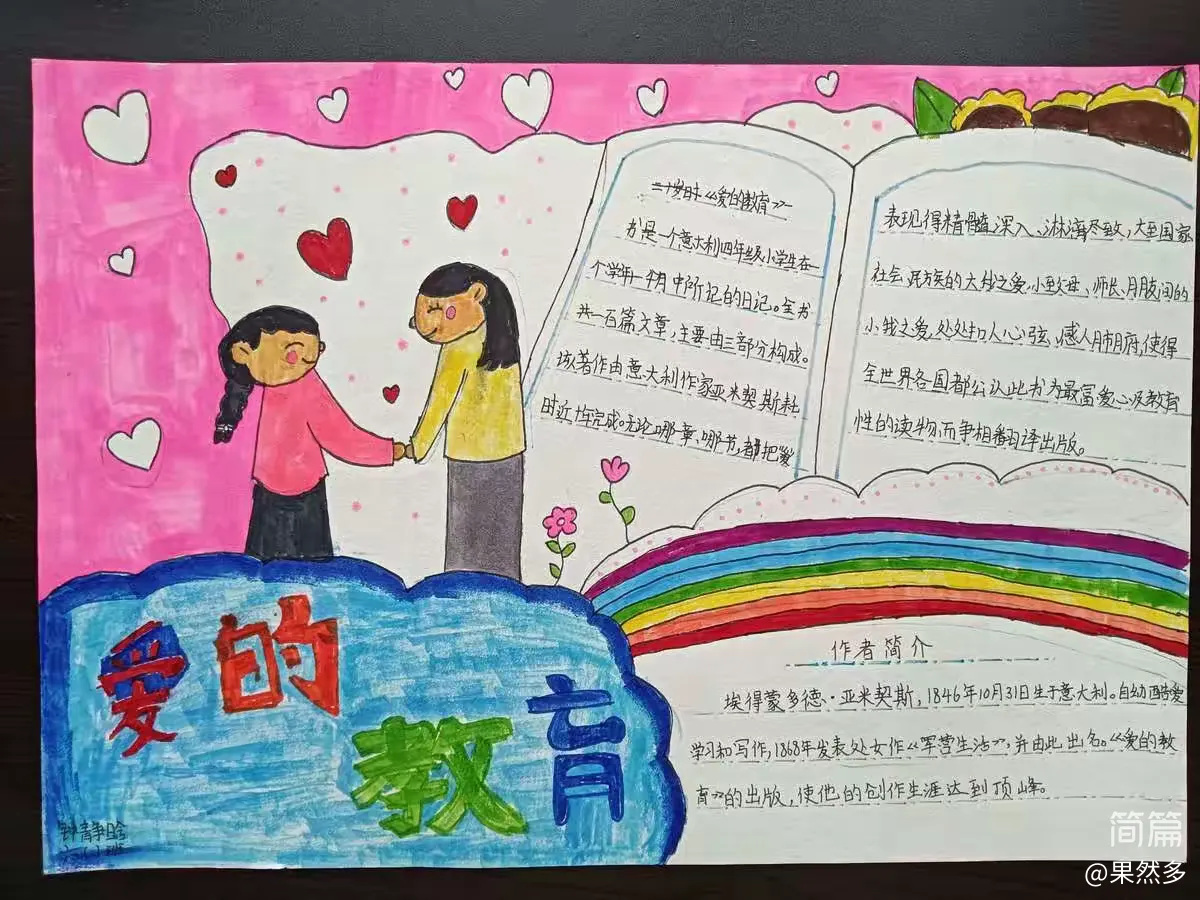 《爱的教育》一
书是一个意大利四年级小学生在一
个学年十个月中所记的日记。全书
共一百篇文章,主要由三部分构成。
该著作由意大利作家亚米契斯耗
时近十年完成。无论哪章、哪节,都把"爱"
表现得精髓深入、淋漓尽致,大至国家
社会、民族的大我之爱,小至父母、师长、朋友间的
小我之爱,处处扣人心弦,感人肺府,使得
全世界各国都公认此书为最富爱心及教育
性的读物,而争相翻译出版。
爱的
教育
作者简介
埃得蒙多德·亚米契斯,1846年10月31日生于意大利。自幼酷爱
学习和写作,1868年发表处女作《军营生活》,并由此出名。《爱的教
育》的出版,使他的创作生涯达到顶峰。
钟静晗
简篇
@果然多